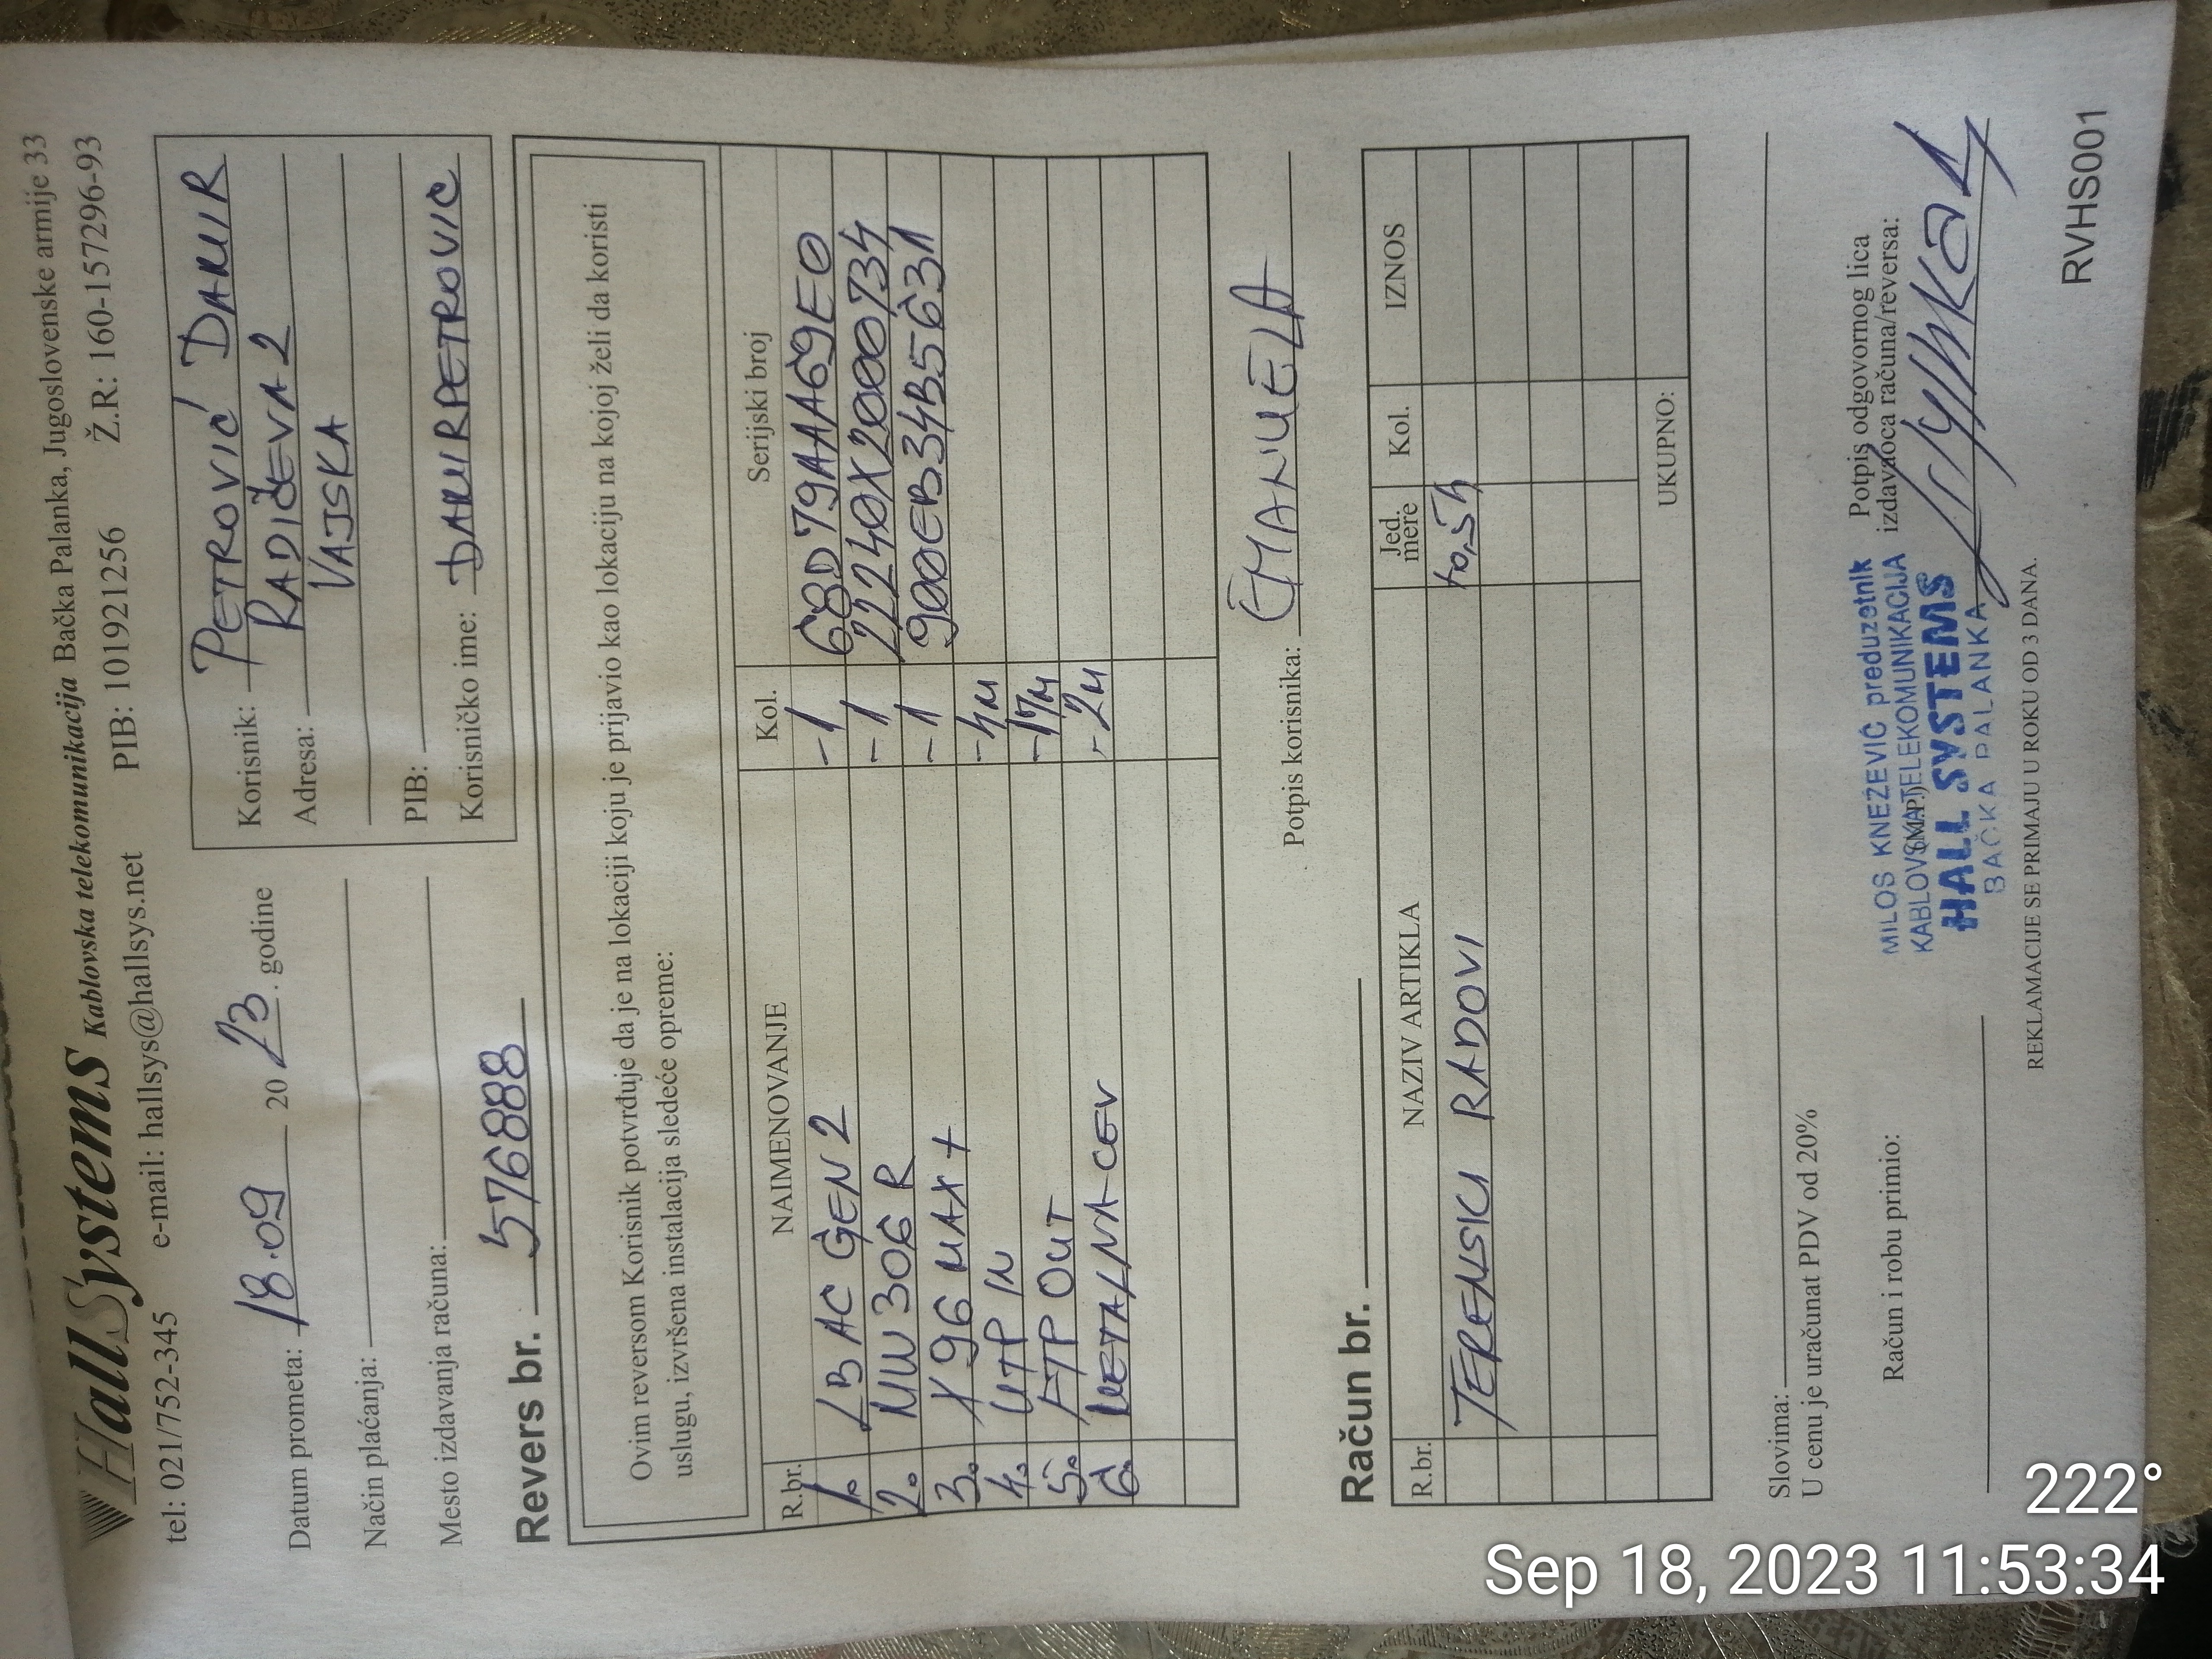 HallSystems Kablovska telekomunikacija Bačka Palanka, Jugoslovenske armije 33
tel: 021/752-345 e-mail: hallsys@hallsys.net PIB: 101921256 Ž.R: 160-157296-93
Datum prometa: 18.09 2023. godine
Način plaćanja:
Mesto izdavanja računa:
Korisnik: PETROVIĆ DAMIR
Adresa: RADIČEVA 2
VAJSKA
PIB:
Korisničko ime: DAMIRPETROVIC
Revers br. 576888
Ovim reversom Korisnik potvrđuje da je na lokaciji koju je prijavio kao lokaciju na kojoj želi da koristi
uslugu, izvršena instalacija sledeće opreme:
R.br. NAIMENOVANJE Kol. Serijski broj
1. LB AC GEN 2 -1 68D79AAA69E0
2. MW306R -1 22240X2000734
3. X96 MAX + -1 900EB34B5631
4. UTP IN -4M
5. FTP OUT -17M
6. METALNA CEV -2M
Potpis korisnika: EMANUELA
Račun br.
R.br. NAZIV ARTIKLA Jed. mere Kol. IZNOS
TERENSKI RADOVI 0,5h
UKUPNO:
Slovima:
U cenu je uračunat PDV od 20%
Račun i robu primio:
MILOS KNEŽEVIĆ preduzetnik
KABLOVSKA TELEKOMUNIKACIJA
HALL SYSTEMS
BAČKA PALANKA
(M.P.)
Potpis odgovornog lica
izdavaoca računa/reversa:
REKLAMACIJE SE PRIMAJU U ROKU OD 3 DANA.
RVHS001
222°
Sep 18, 2023 11:53:34